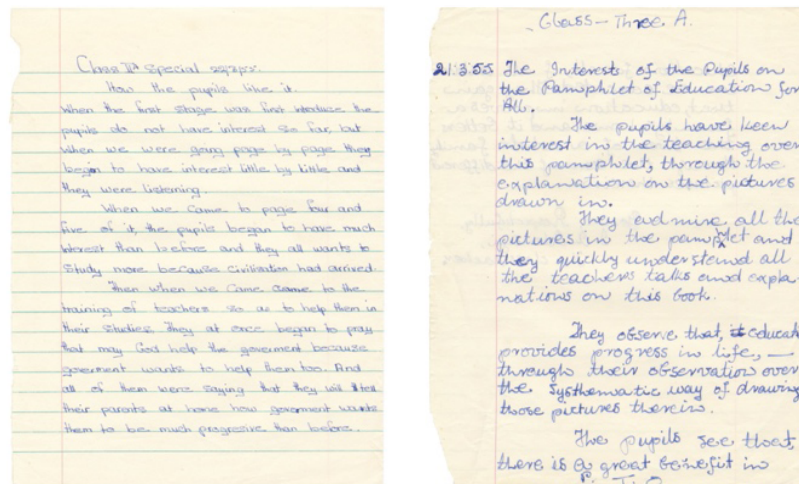 Class IIA Special 22/3/55.
How the pupils like it.
When the first stage was first introduce the
pupils do not have interest so far, but
when we were going page by page they
begin to have interest little by little and
they were listening.
When we came to page four and
five of it, the pupils began to have much
interest than before and they all wants to
study more because civilisation had arrived.
Then when we came to the
training of teachers so as to help them in
their studies. They at once began to pray
that may God help the goverment because
goverment wants to help them too. And
all of them were saying that they will tell
their parents at home how goverment wants
them to be much progressive than before.
Class - Three A.
21.3.55 The Interests of the Pupils on
the Pamphlet of Education for
All.
The pupils have keen
interest in the teaching over
this pamphlet, through the
explanation on the pictures
drawn in.
They admire all the
pictures in the pamphlet and
they quickly understand all
the teachers talks and expla-
nations on this book.
They observe that, educat
provides progress in life, —
through their observation over
the systhematic way of drawing
those pictures therein.
The pupils see that,
there is a great benefit in